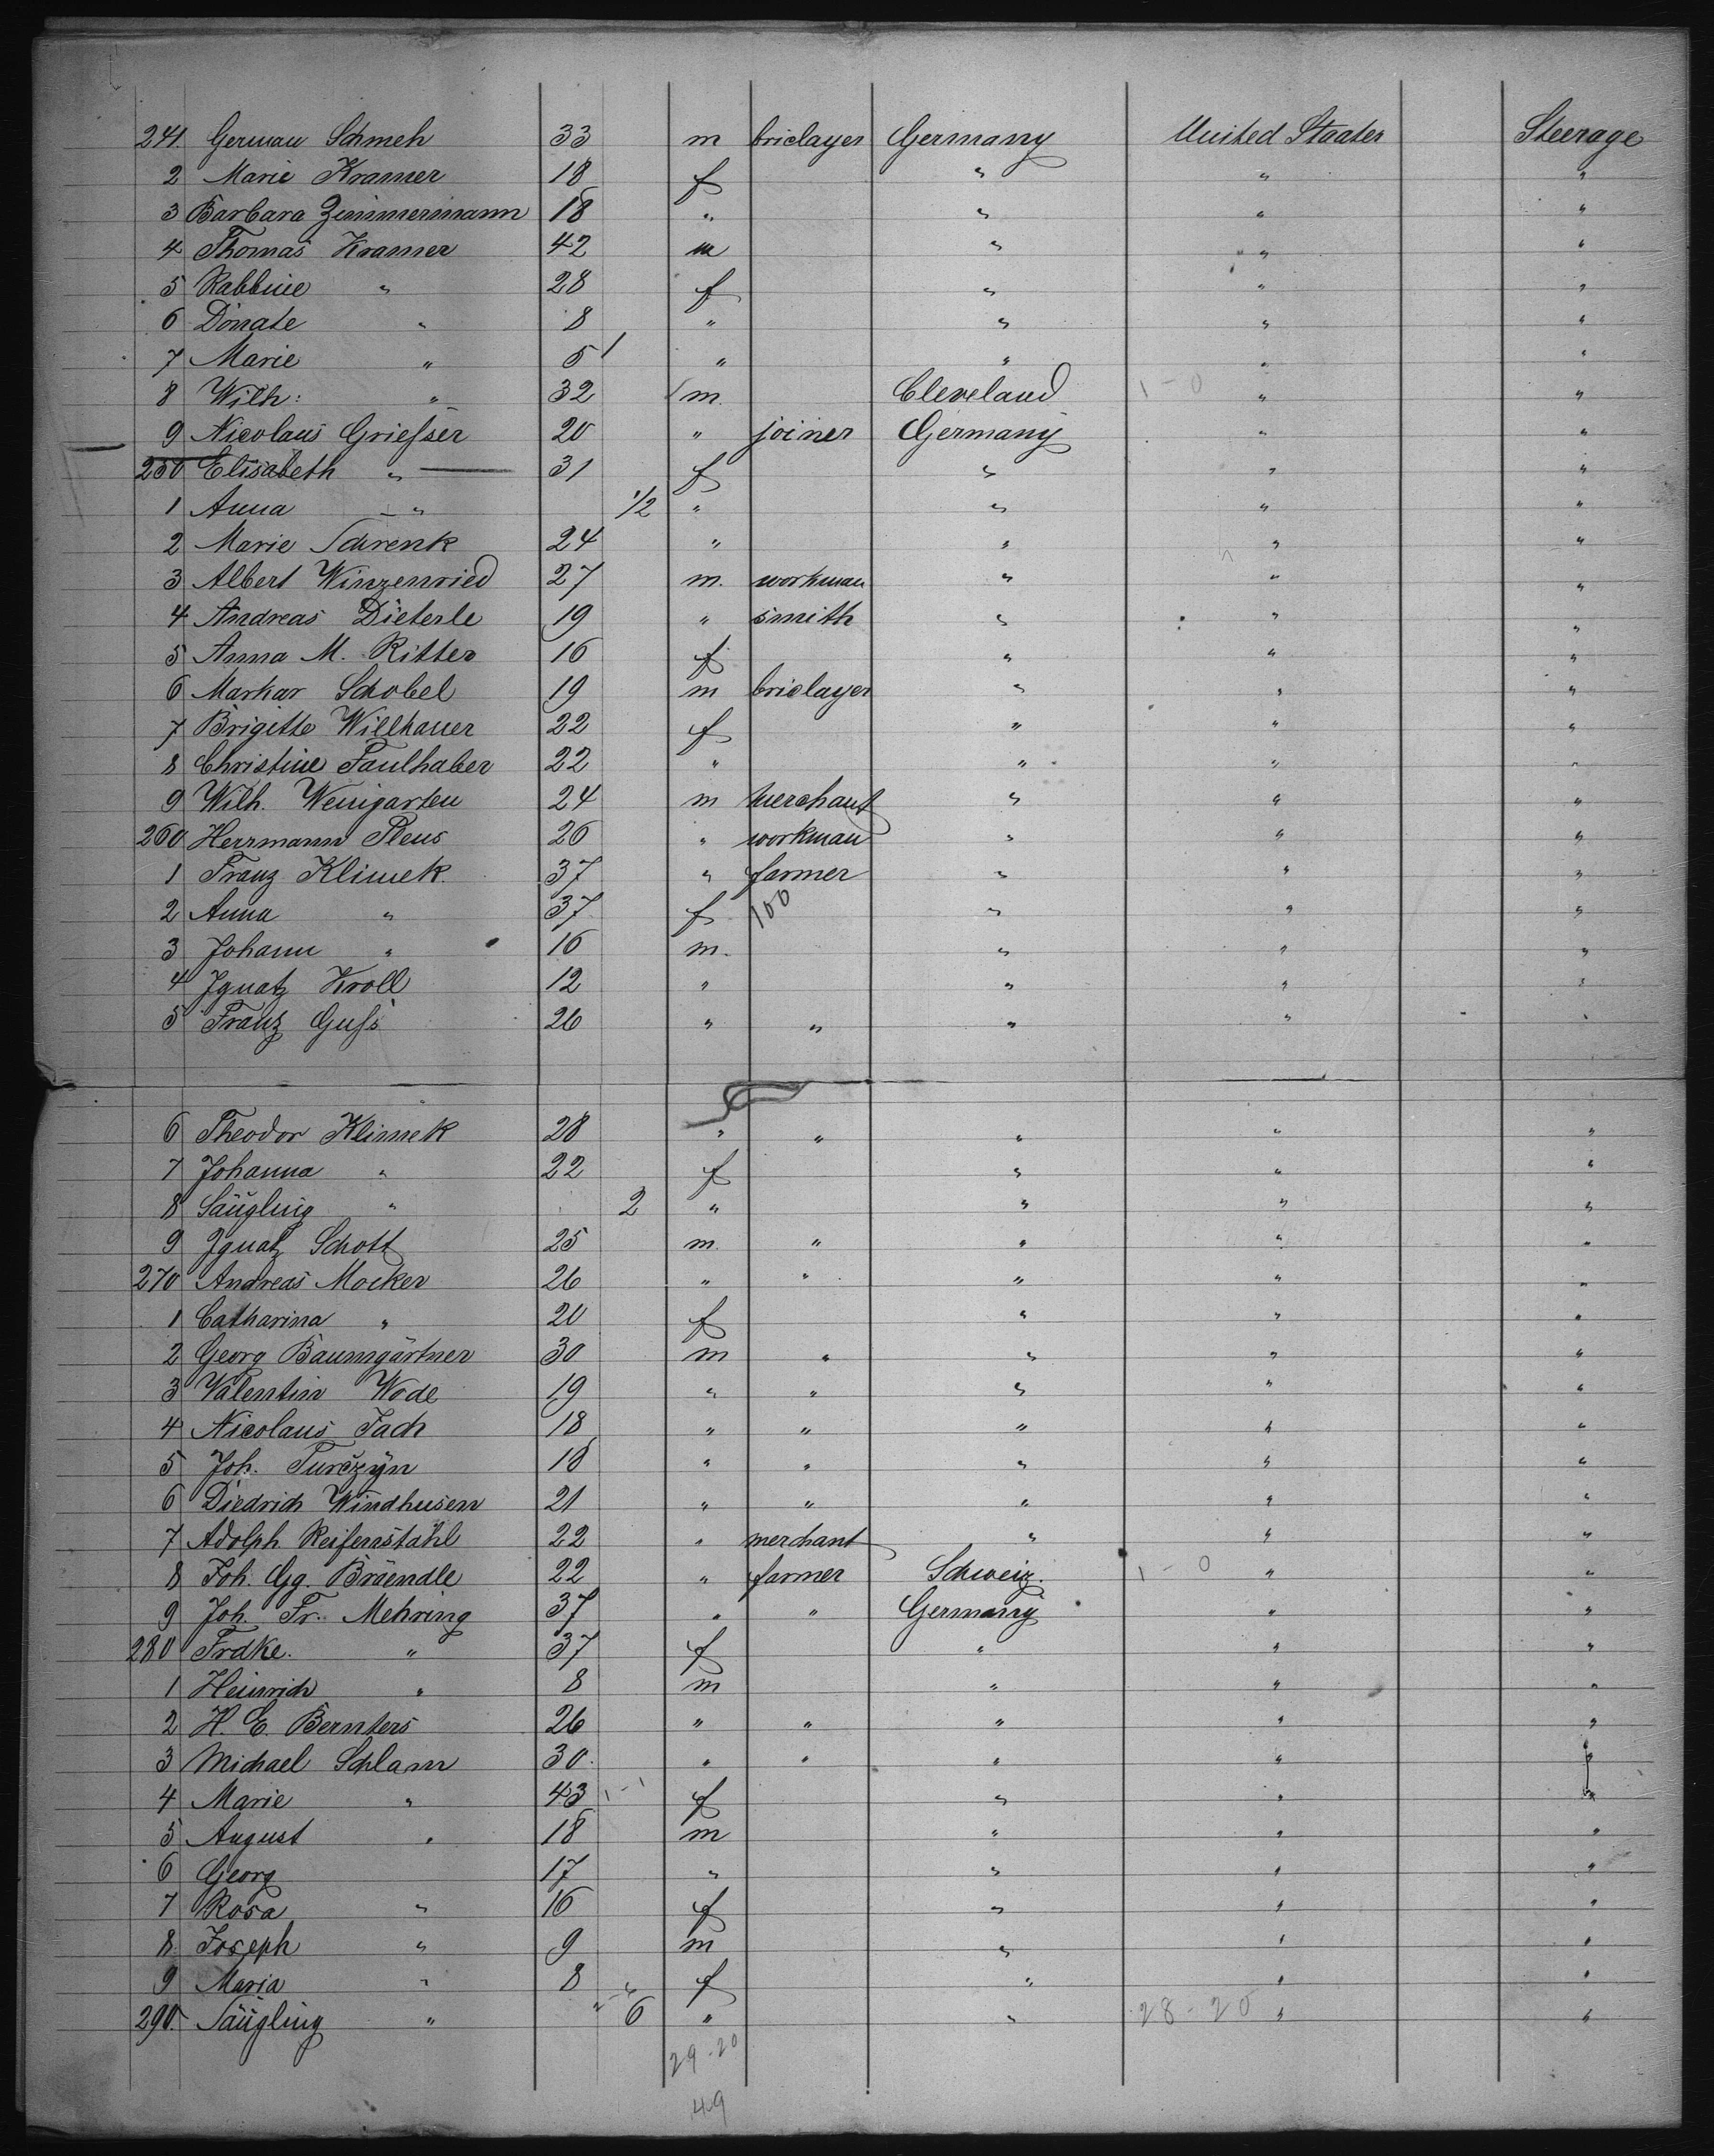 241. German Schmeh 33 m briclayer Germany United Staates Steerage
2 Marie Kramer 18 f " " "
3 Barbara Zimmermann 18 " " " "
4 Thomas Kramer 42 m " " "
5 Rabbine " 28 f " " "
6 Donate " 8 " " " "
7 Marie " 5 " " " "
8 Wilh: " 32 m. Cleveland 1 - 0 " "
9 Nicolaus Griesser 20 " joiner Germany " "
250 Elisabeth " 31 f " " "
1 Anna " 1/2 " " " "
2 Marie Schrenk 24 " " " "
3 Albert Winzenried 27 m. workman " " "
4 Andreas Dieterle 19 " smith " " "
5 Anna M. Ritter 16 f " " "
6 Markar Schobel 19 m briclayer " " "
7 Brigitte Willhauer 22 f " " "
8 Christine Faulhaber 22 " " " "
9 Wilh. Weingarten 24 m merchant " " "
260 Herrmann Pleus 26 " workman " " "
1 Franz Klimek 37 " farmer " " "
2 Anna " 37 f 100 " " "
3 Johann " 16 m. " " "
4 Ignatz Kroll 12 " " " "
5 Franz Guss 26 " " " " "
6 Theodor Klimek 28 " " " " "
7 Johanna " 22 f " " "
8 Säugling " 2 " " " "
9 Ignatz Schott 25 m. " " " "
270 Andreas Mocker 26 " " " " "
1 Catharina " 20 f " " "
2 Georg Baumgärtner 30 m " " " "
3 Valentin Wode 19 " " " " "
4 Nicolaus Jach 18 " " " " "
5 Joh. Turczyn 18 " " " " "
6 Diedrich Windhusen 21 " " " " "
7 Adolph Reifenstahl 22 " merchant " " "
8 Joh. Gg. Bräendle 22 " farmer Schweiz. 1 - 0 " "
9 Joh. Fr. Mehring 37 " " Germany " "
280 Frdke. " 37 f " " "
1 Heinrich " 8 m " " "
2 H. E. Bernters 26 " " " " "
3 Michael Schlam 30 " " " " "
4 Marie " 43 1-1 f " " "
5 August " 18 m " " "
6 Georg 17 " " " "
7 Rosa " 16 f " " "
8 Joseph " 9 m " " "
9 Maria " 8 f " " "
290. Säugling " 6 " " 28 - 20 " "
29-20
49